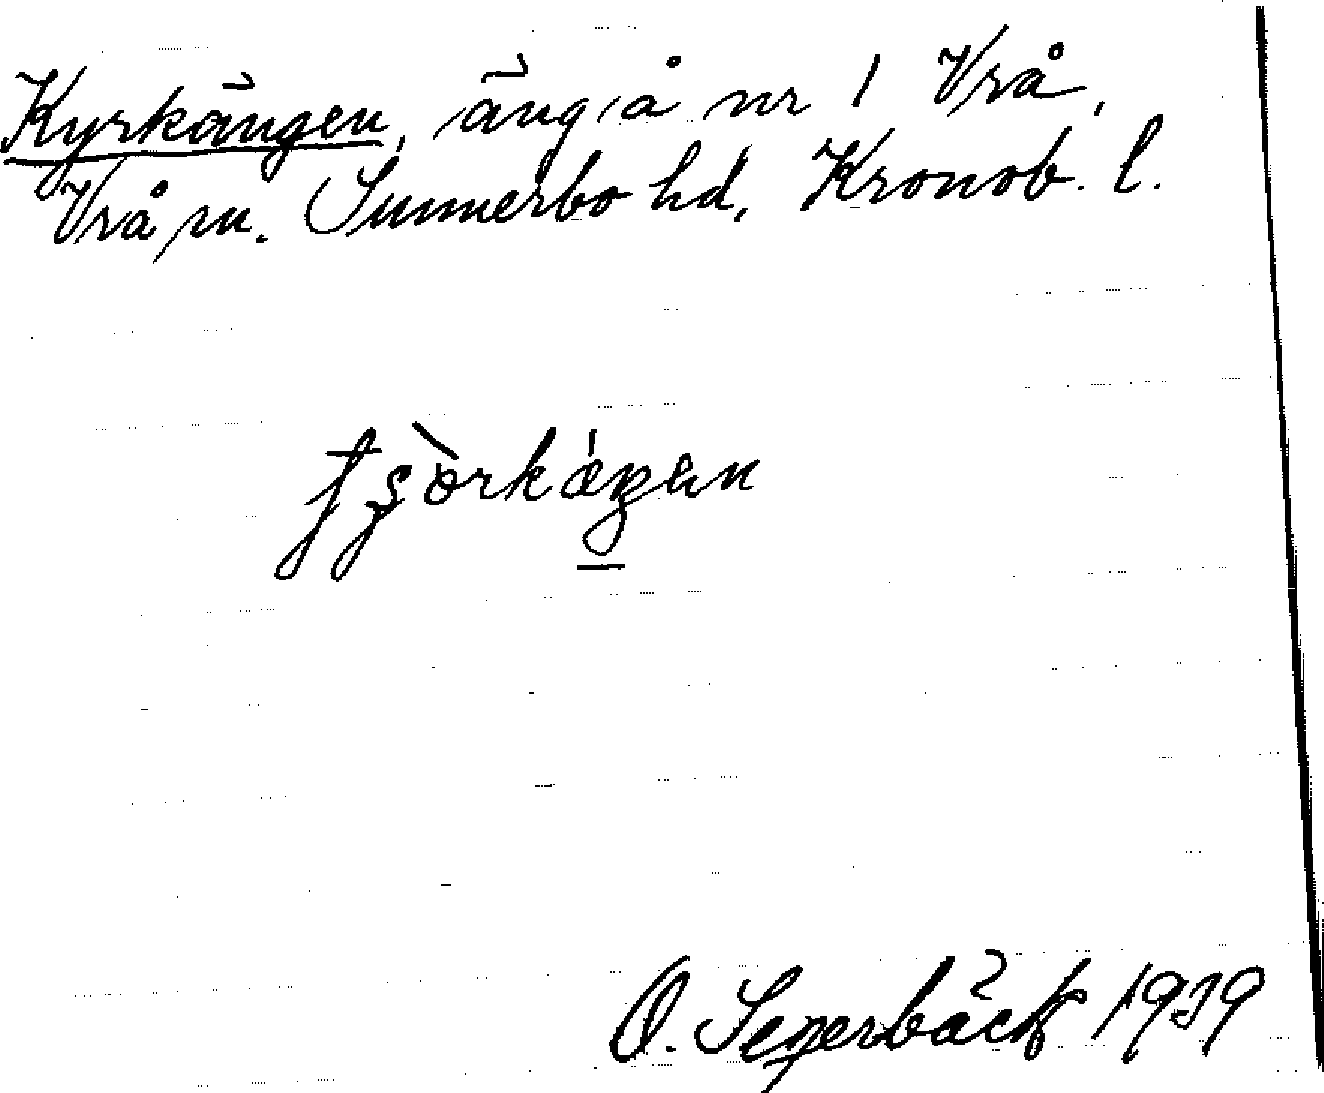 Kyrkängen, äng å nr 1 Vrå,
Vrå sn. Sunnerbo hd, Kronob. l.
O. Segerbäck 1939